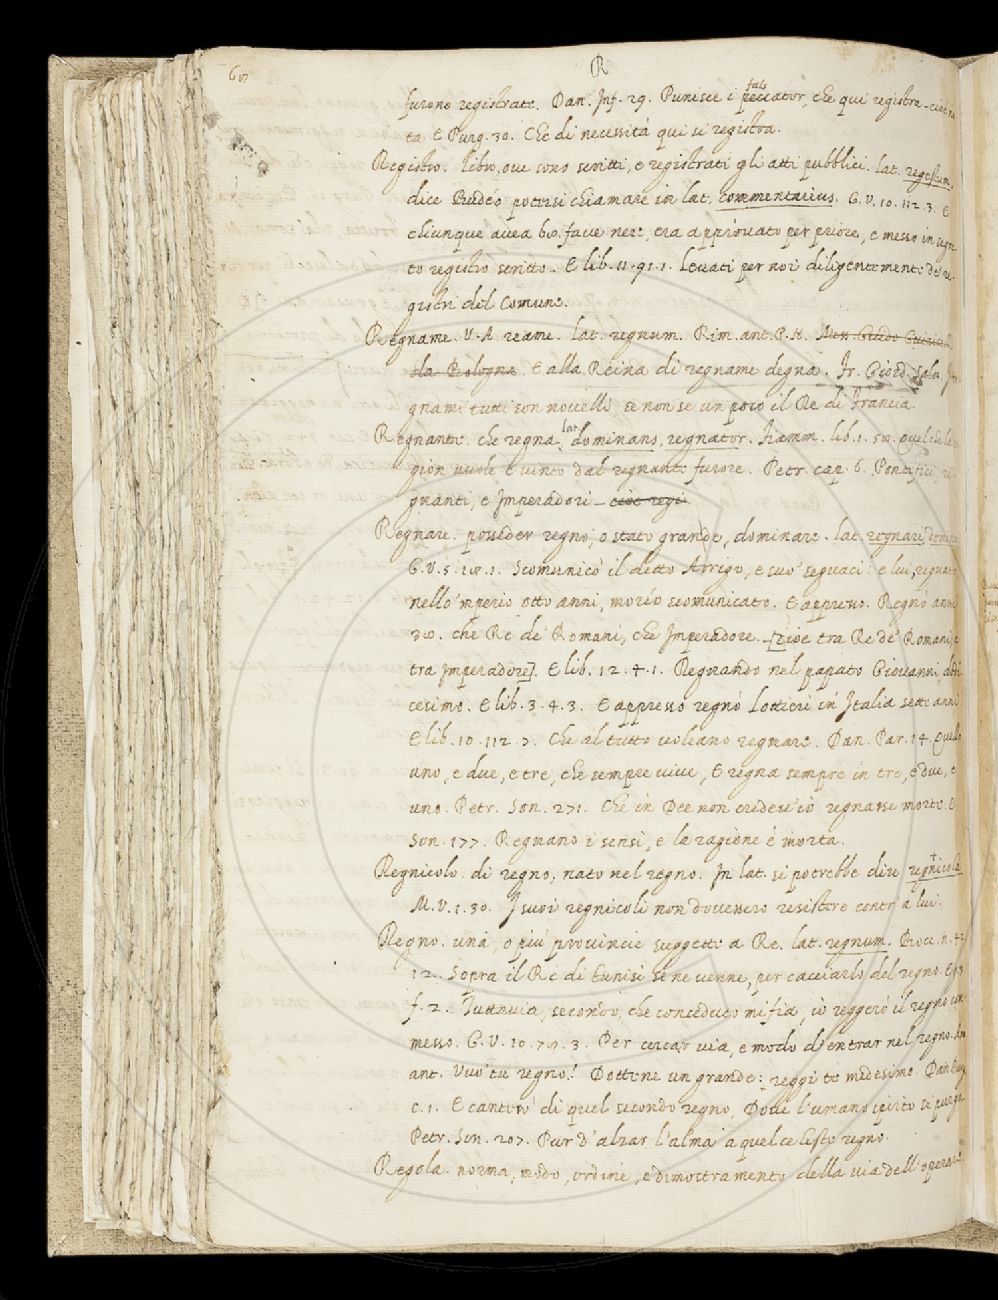 R
furono registrate. Dan. Inf. 29. Punisce i fals peccator, che qui registra. E
ta E Purg. 30. Che di necessità qui si registra.
Registro. libro, oue sono scritti, e registrati gli atti pubblici. lat. regestum,
dice Budéo potersi chiamare in lat. commentarius. G. V. 10. 112. 3. E
chiunque auea 60. faue nere, era approuato per priore, e messo in segre
to registro scritto. E lib. 11. 91. 1. leuati per noi diligentemente de' re
gistri del Comune.
Regname. V. A. reame. lat. regnum. Rim. ant. P. N. Mes. Guido Guinizell
da Bologna. E alla Reina di regname degna. Fr. Giord. Sala.
gnami tutti son nouelli, se non se un poco il Re di Francia.
Regnante. che regna, lat. dominans, regnator. Fiamm. lib. 1. 50. quel che la
gion vuole è vinto dal regnante furore. Petr. cap. 6. Pontefici, re
gnanti, e Imperadori
Regnare. posseder regno, o stato grande, dominare. lat. regnare,
G. V. 5. 18. 1. Scomunicò il detto Arrigo, e suo' seguaci: e lui, regnato
nello 'mperio otto anni, morìo scomunicato. E appresso. Regnò anni
20. che Re de' Romani, che Imperadore. [cioè tra Re de' Romani, e
tra Imperadore]. E lib. 12. 4. 1. Regnando nel papato Giouanni,
cesimo. E lib. 3. 4. 3. E appresso regnò Lottieri in Italia sette anni.
E lib. 10. 112. 7. Che al tutto uoleano regnare. Dan. Par. 14. Quello
uno, e due, e tre, che sempre viue, E regna sempre in tre, e due, e
uno. Petr. Son. 271. Che in Dee non credeu' io regnasse morte. E
Son. 177. Regnano i sensi, e la ragione è morta.
Regnicolo. di regno, nato nel regno. In lat. si potrebbe dire regnicola
M. V. 1. 30. I suoi regnicoli non douessero resistere contr' a lui.
Regno. una, o più prouincie suggette a Re. lat. regnum. Bocc. n. 42
12. Sopra il Re di Tunisi se ne venne, per cacciarlo del regno. E
f. 2. Tuttauia, secondo, che conceduto mi fia, io reggerò il regno com
messo. G. V. 10. 70. 3. Per cercar via, e modo d' entrar nel regno.
ant. Vuo' tu regno? Dottene un grande: reggi te medesimo. Dan. Purg.
c. 1. E canterò di quel secondo regno, Doue l'umano spirito si purga.
Petr. Son. 207. Pur d' alzar l'alma a quel celeste regno.
Regola. norma, modo, ordine, e dimostramento della via dell' operare